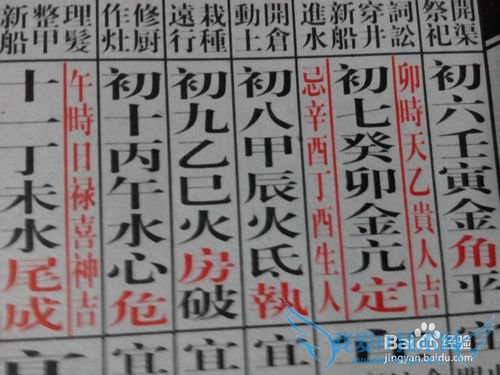 開渠
祭祀
初六壬寅金角平
詞訟
卯時天乙貴人吉
穿井
新船
初七癸卯金亢定
宜
進水
忌辛酉丁酉生人
開倉
動土
初八甲辰火氐執
宜
栽種
遠行
初九乙巳火房破
宜
修厨
作灶
初十丙午水心危
宜
理髮
午時日禄喜神吉
整甲
新船
十一丁未水尾成
宜
Baidu经验
jingyan.baidu.com